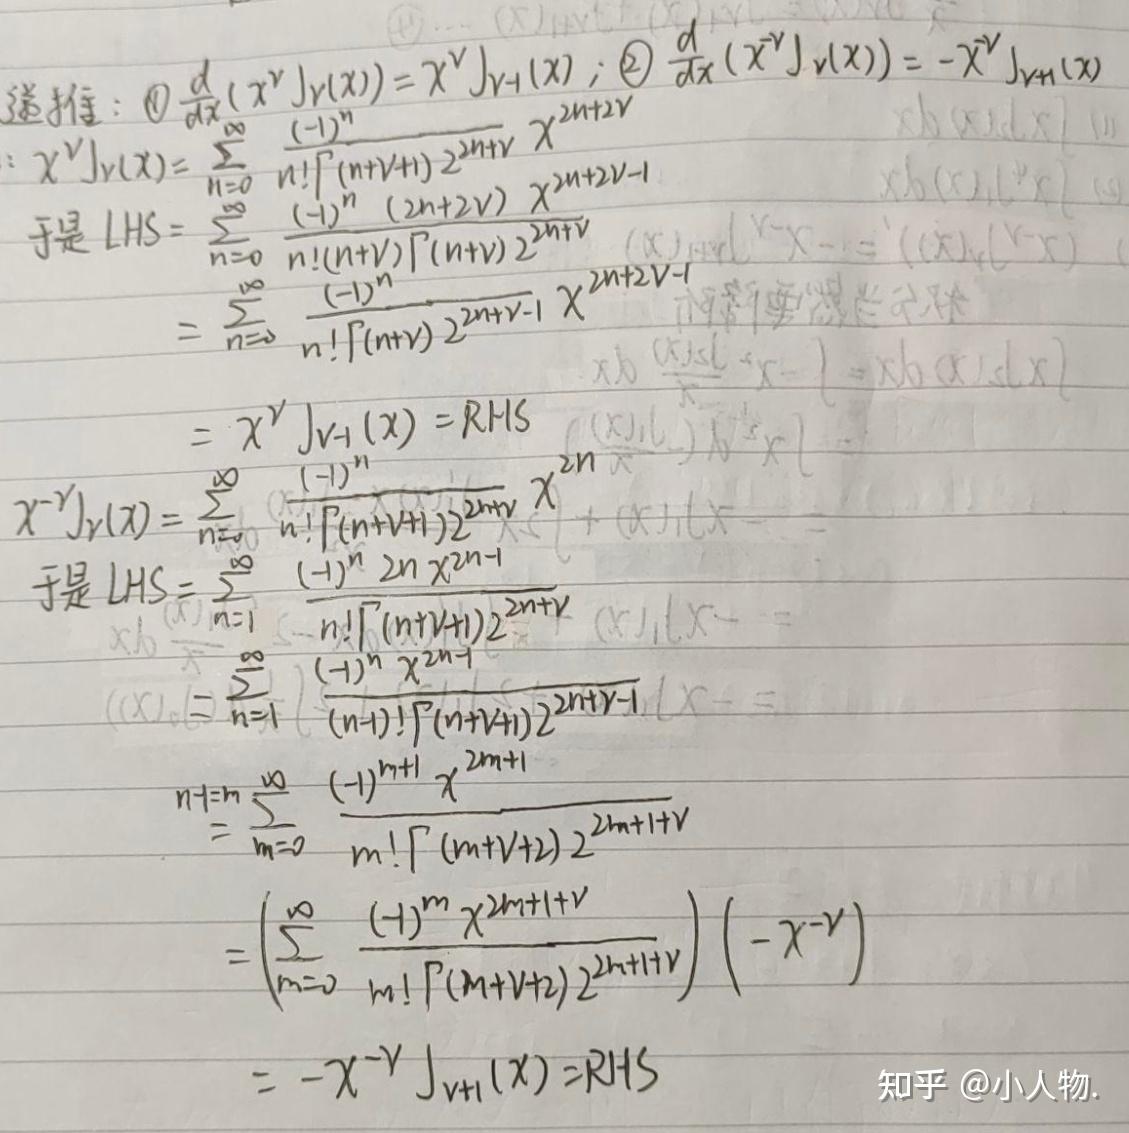 递推: ① d/dx (x^ν J_ν(x)) = x^ν J_{ν-1}(x) ; ② d/dx (x^{-ν} J_ν(x)) = -x^{-ν} J_{ν+1}(x)
: x^ν J_ν(x) = ∑_{n=0}^{∞} (-1)^n / (n! Γ(n+ν+1) 2^{2n+ν}) x^{2n+2ν}
于是 LHS = ∑_{n=0}^{∞} (-1)^n (2n+2ν) x^{2n+2ν-1} / (n! (n+ν) Γ(n+ν) 2^{2n+ν})
= ∑_{n=0}^{∞} (-1)^n / (n! Γ(n+ν) 2^{2n+ν-1}) x^{2n+2ν-1}
= x^ν J_{ν-1}(x) = RHS
x^{-ν} J_ν(x) = ∑_{n=0}^{∞} (-1)^n / (n! Γ(n+ν+1) 2^{2n+ν}) x^{2n}
于是 LHS = ∑_{n=1}^{∞} (-1)^n 2n x^{2n-1} / (n! Γ(n+ν+1) 2^{2n+ν})
= ∑_{n=1}^{∞} (-1)^n x^{2n-1} / ((n-1)! Γ(n+ν+1) 2^{2n+ν-1})
n-1=m = ∑_{m=0}^{∞} (-1)^{m+1} x^{2m+1} / (m! Γ(m+ν+2) 2^{2m+1+ν})
= (∑_{m=0}^{∞} (-1)^m x^{2m+1+ν} / (m! Γ(m+ν+2) 2^{2m+1+ν})) (-x^{-ν})
= -x^{-ν} J_{ν+1}(x) = RHS
知乎 @小人物.